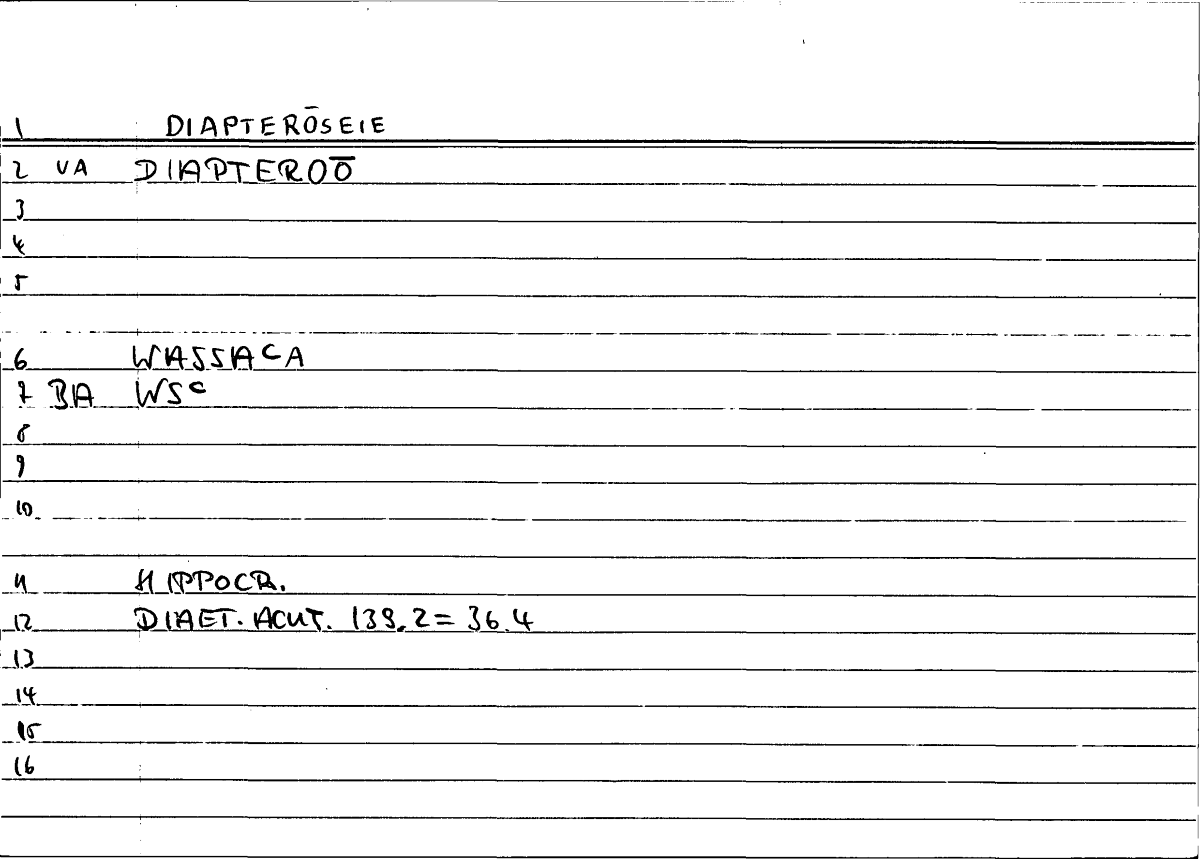 1 DIAPTERŌSEIE
2 VA DIAPTEROŌ
3
4
5
6 WASSAʿA
7 BA WSʿ
8
9
10
11 HIPPOCR.
12 DIAET. ACUT. 139.2 = 36.4
13
14
15
16